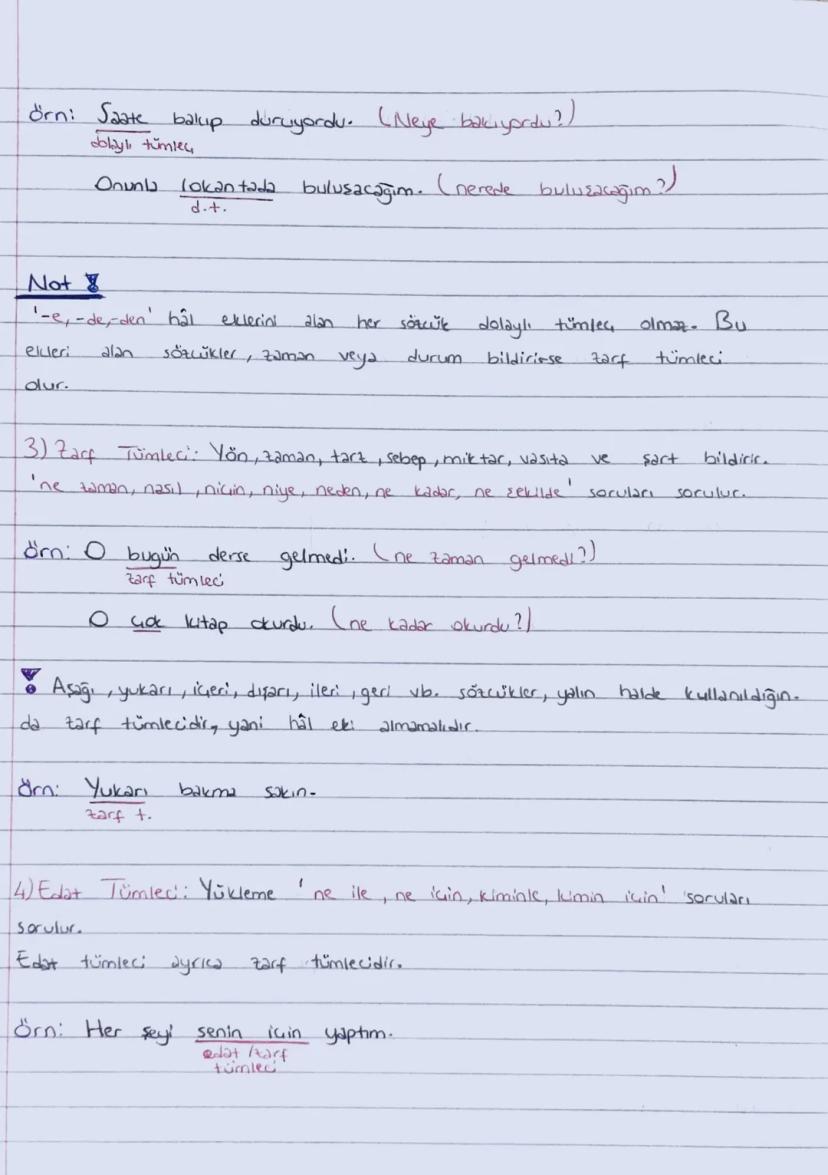 Örn: Saate bakıp duruyordu. (Neye bakıyordu?)
dolaylı tümleç
Onunla lokantada buluşacağım. (nerede buluşacağım?)
d.t.
Not
'-e, -de, -den' hâl eklerini alan her sözcük dolaylı tümleç olmaz. Bu
ekleri alan sözcükler, zaman veya durum bildirirse zarf tümleci
olur.
3) Zarf Tümleci: Yön, zaman, tarz, sebep, miktar, vasıta ve şart bildirir.
'ne zaman, nasıl, niçin, niye, neden, ne kadar, ne şekilde' soruları sorulur.
Örn: O bugün derse gelmedi. (ne zaman gelmedi?)
zarf tümleci
O çok kitap okurdu. (ne kadar okurdu?)
! Aşağı, yukarı, içeri, dışarı, ileri, geri vb. sözcükler, yalın halde kullanıldığın-
da zarf tümlecidir, yani hâl eki almamalıdır.
Örn: Yukarı bakma sakın.
zarf t.
4) Edat Tümleci: Yükleme 'ne ile, ne için, kiminle, kimin için' soruları
sorulur.
Edat tümleci ayrıca zarf tümlecidir.
Örn: Her şeyi senin için yaptım.
edat / zarf
tümleci